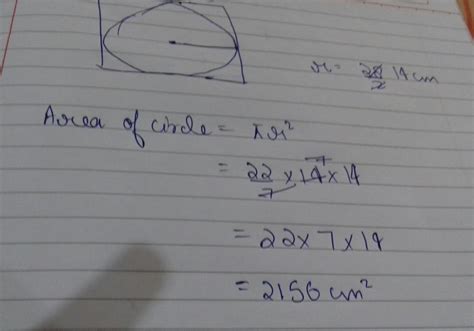 r = 28/2 14 cm
Area of circle = πr²
= 22/7 × 14 7 × 14
= 22 × 7 × 14
= 2156 cm²